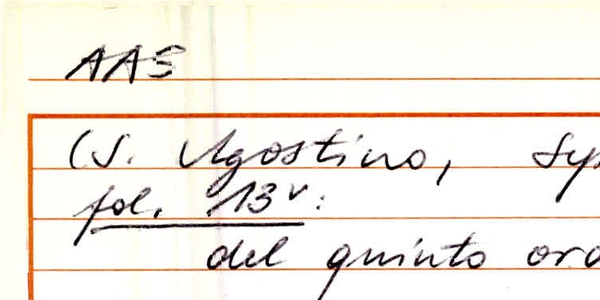 AAS
(S. Agostino, Sp
fol. 13v:
del quinto ord